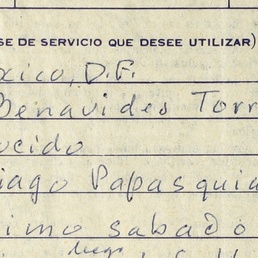 SE DE SERVICIO QUE DESEE UTILIZAR)
xico, D.F.
Benavides Torr
ocido
iago Papasquia
imo sabado